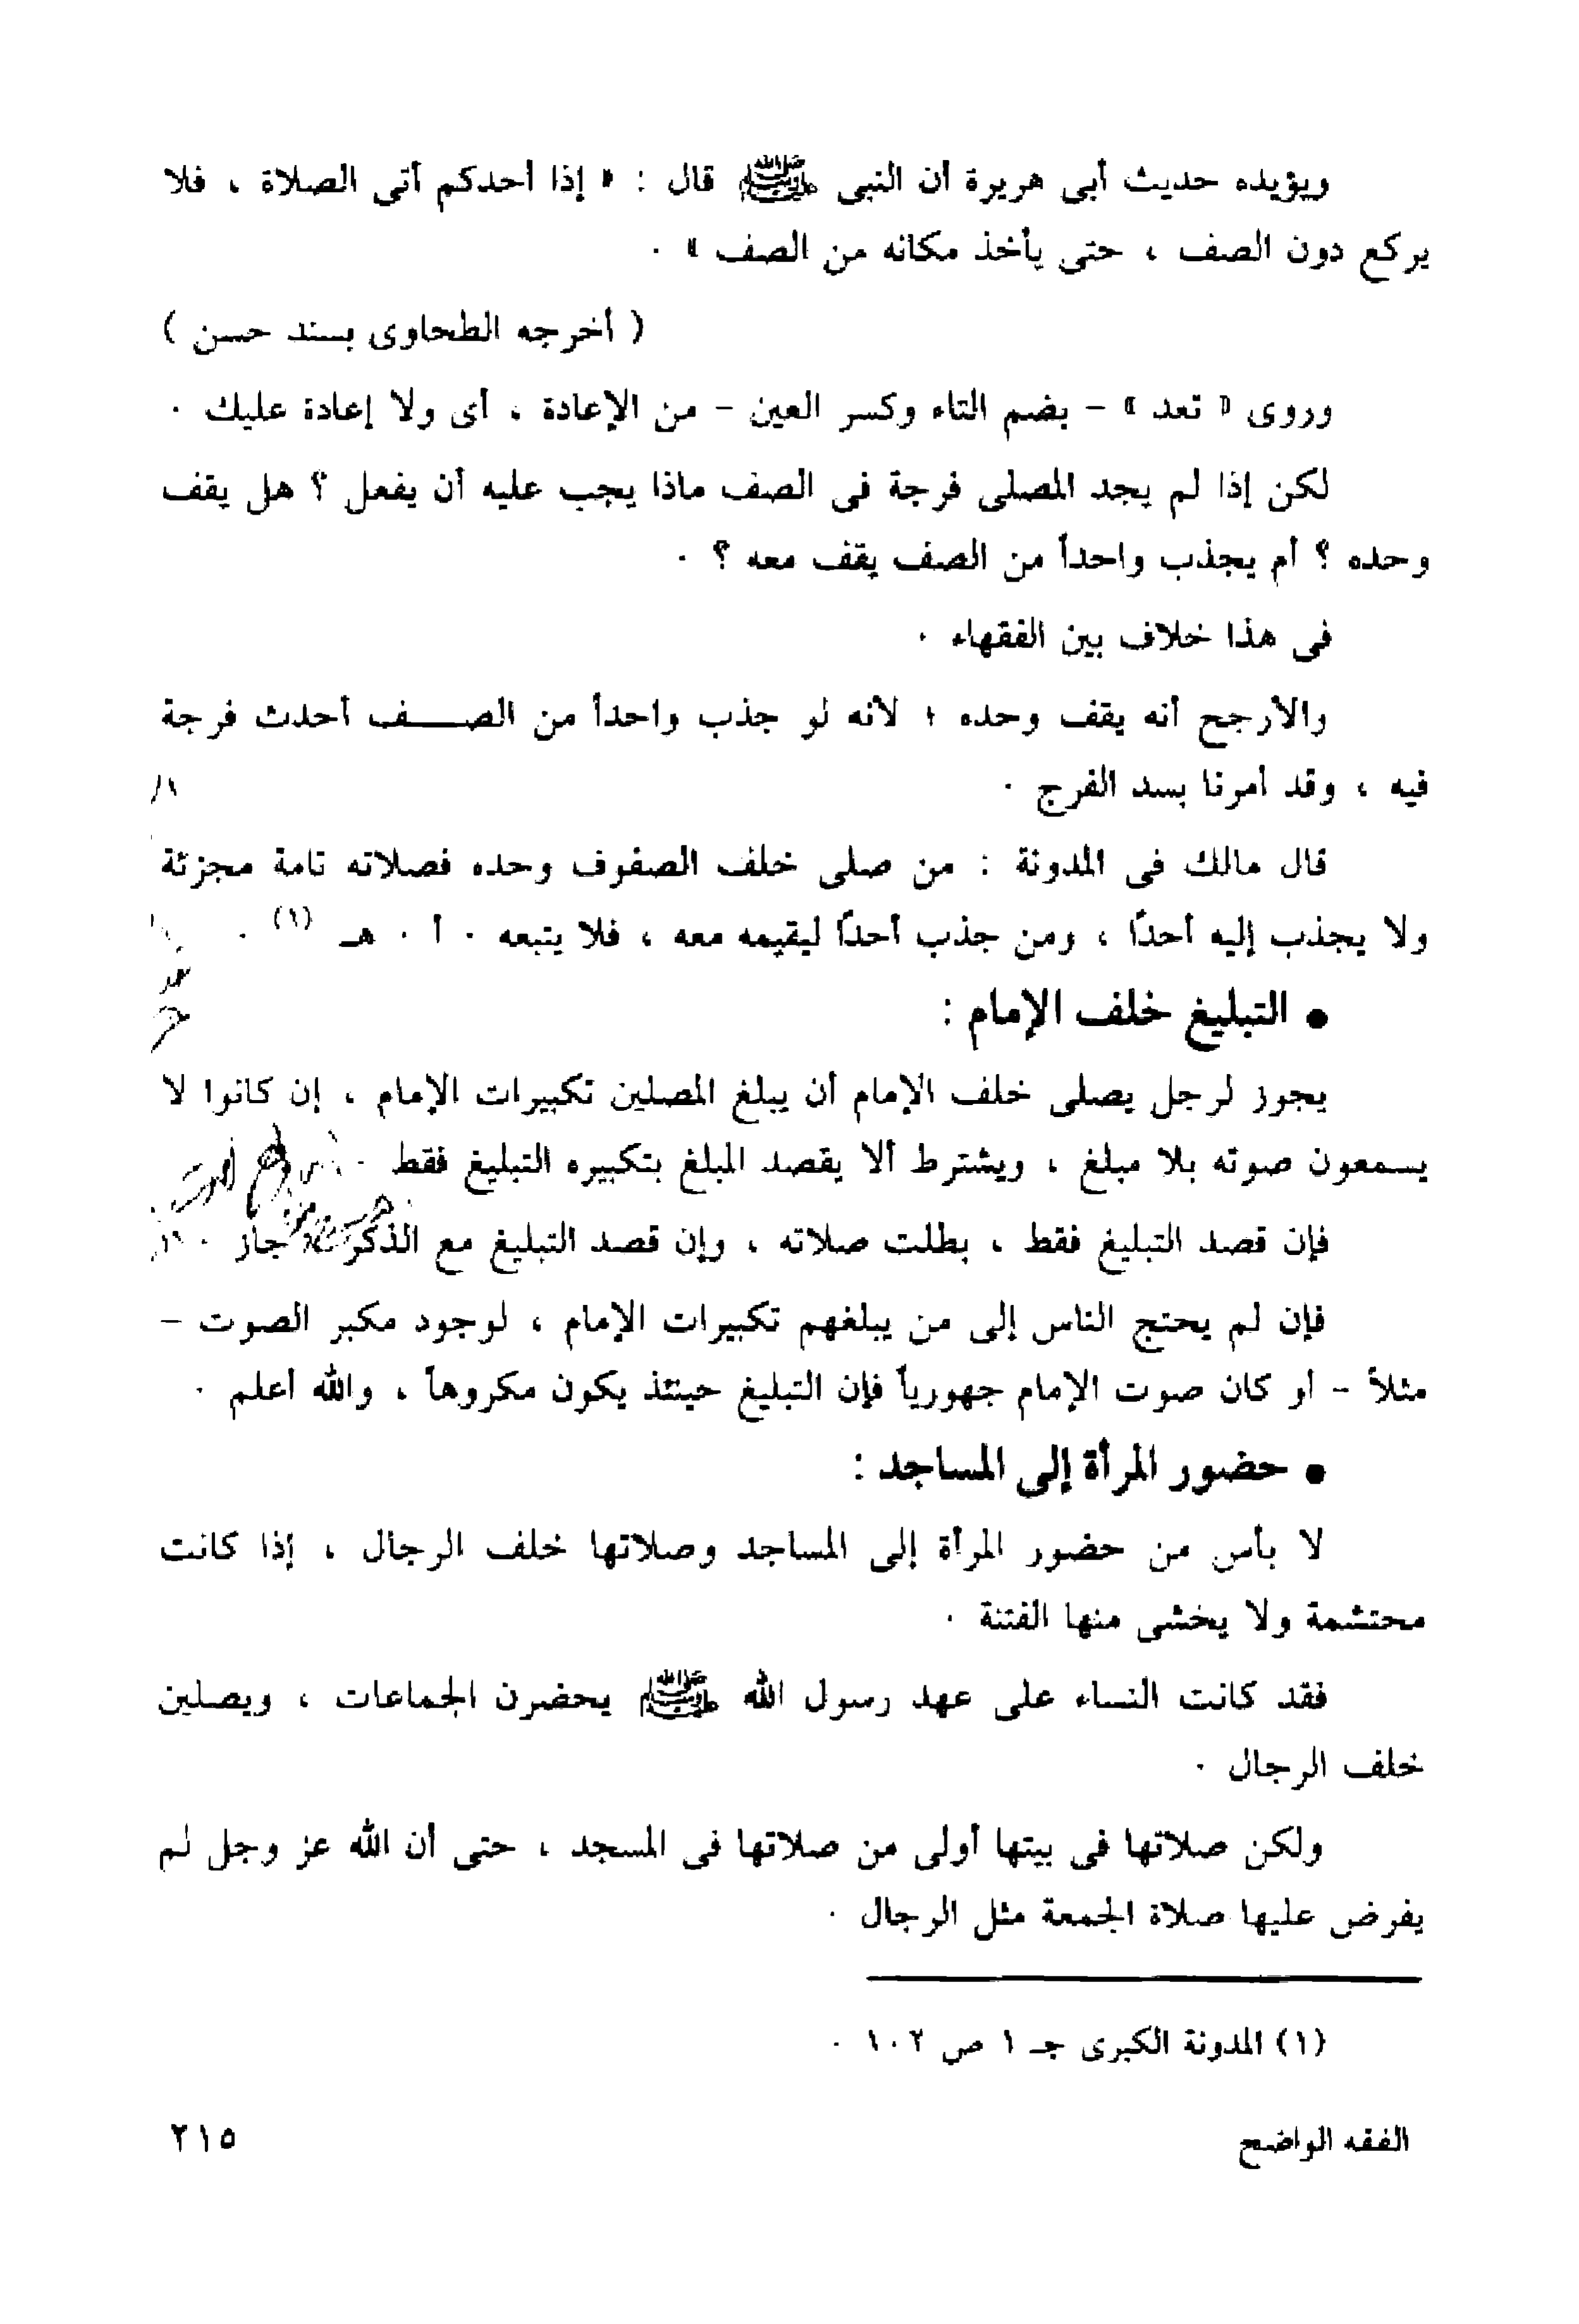 ويؤيده حديث أبى هريرة أن النبى ﷺ قال : « إذا أحدكم أتى الصلاة ، فلا
يركع دون الصف ، حتى يأخذ مكانه من الصف » .
( أخرجه الطحاوى بسند حسن )
وروى « تعد » - بضم التاء وكسر العين - من الإعادة ، أى ولا إعادة عليك .
لكن إذا لم يجد المصلى فرجة فى الصف ماذا يجب عليه أن يفعل ؟ هل يقف
وحده ؟ أم يجذب واحداً من الصف يقف معه ؟ .
فى هذا خلاف بين الفقهاء .
والأرجح أنه يقف وحده ؛ لأنه لو جذب واحداً من الصـــف أحدث فرجة
فيه ، وقد أمرنا بسد الفرج .
قال مالك فى المدونة : من صلى خلف الصفوف وحده فصلاته تامة مجزئة
ولا يجذب إليه أحدًا ، ومن جذب أحدًا ليقيمه معه ، فلا يتبعه . أ . هـ (١) .
• التبليغ خلف الإمام :
يجوز لرجل يصلى خلف الإمام أن يبلغ المصلين تكبيرات الإمام ، إن كانوا لا
يسمعون صوته بلا مبلغ ، ويشترط ألا يقصد المبلغ بتكبيره التبليغ فقط .
فإن قصد التبليغ فقط ، بطلت صلاته ، وإن قصد التبليغ مع الذكر جاز .
فإن لم يحتج الناس إلى من يبلغهم تكبيرات الإمام ، لوجود مكبر الصوت -
مثلاً - أو كان صوت الإمام جهورياً فإن التبليغ حينئذ يكون مكروهاً ، والله أعلم .
• حضور المرأة إلى المساجد :
لا بأس من حضور المرأة إلى المساجد وصلاتها خلف الرجال ، إذا كانت
محتشمة ولا يخشى منها الفتنة .
فقد كانت النساء على عهد رسول الله ﷺ يحضرن الجماعات ، ويصلين
خلف الرجال .
ولكن صلاتها فى بيتها أولى من صلاتها فى المسجد ، حتى أن الله عز وجل لم
يفرض عليها صلاة الجمعة مثل الرجال .
(١) المدونة الكبرى جـ ١ ص ١٠٢ .
الفقه الواضح ٢١٥